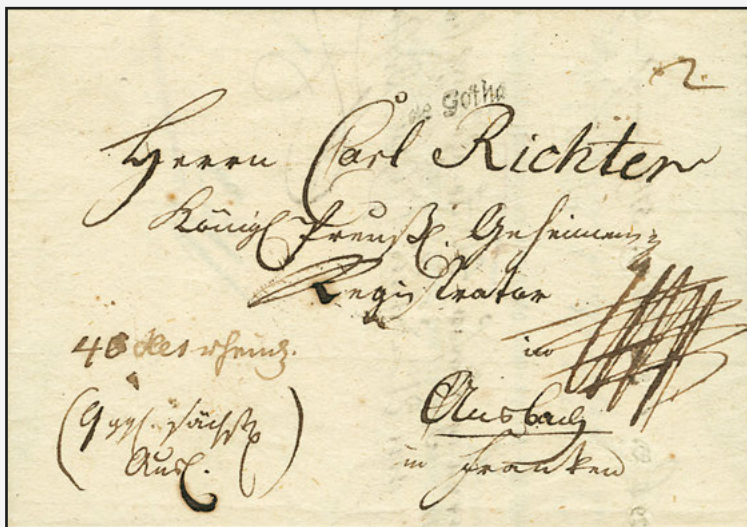 2.
de Gotha
Herrn Carl Richter
Königl Preußl. Geheimen
Registrator
in
Ansbach
in Franken
(9 ggl. sächßl
Ausl.)